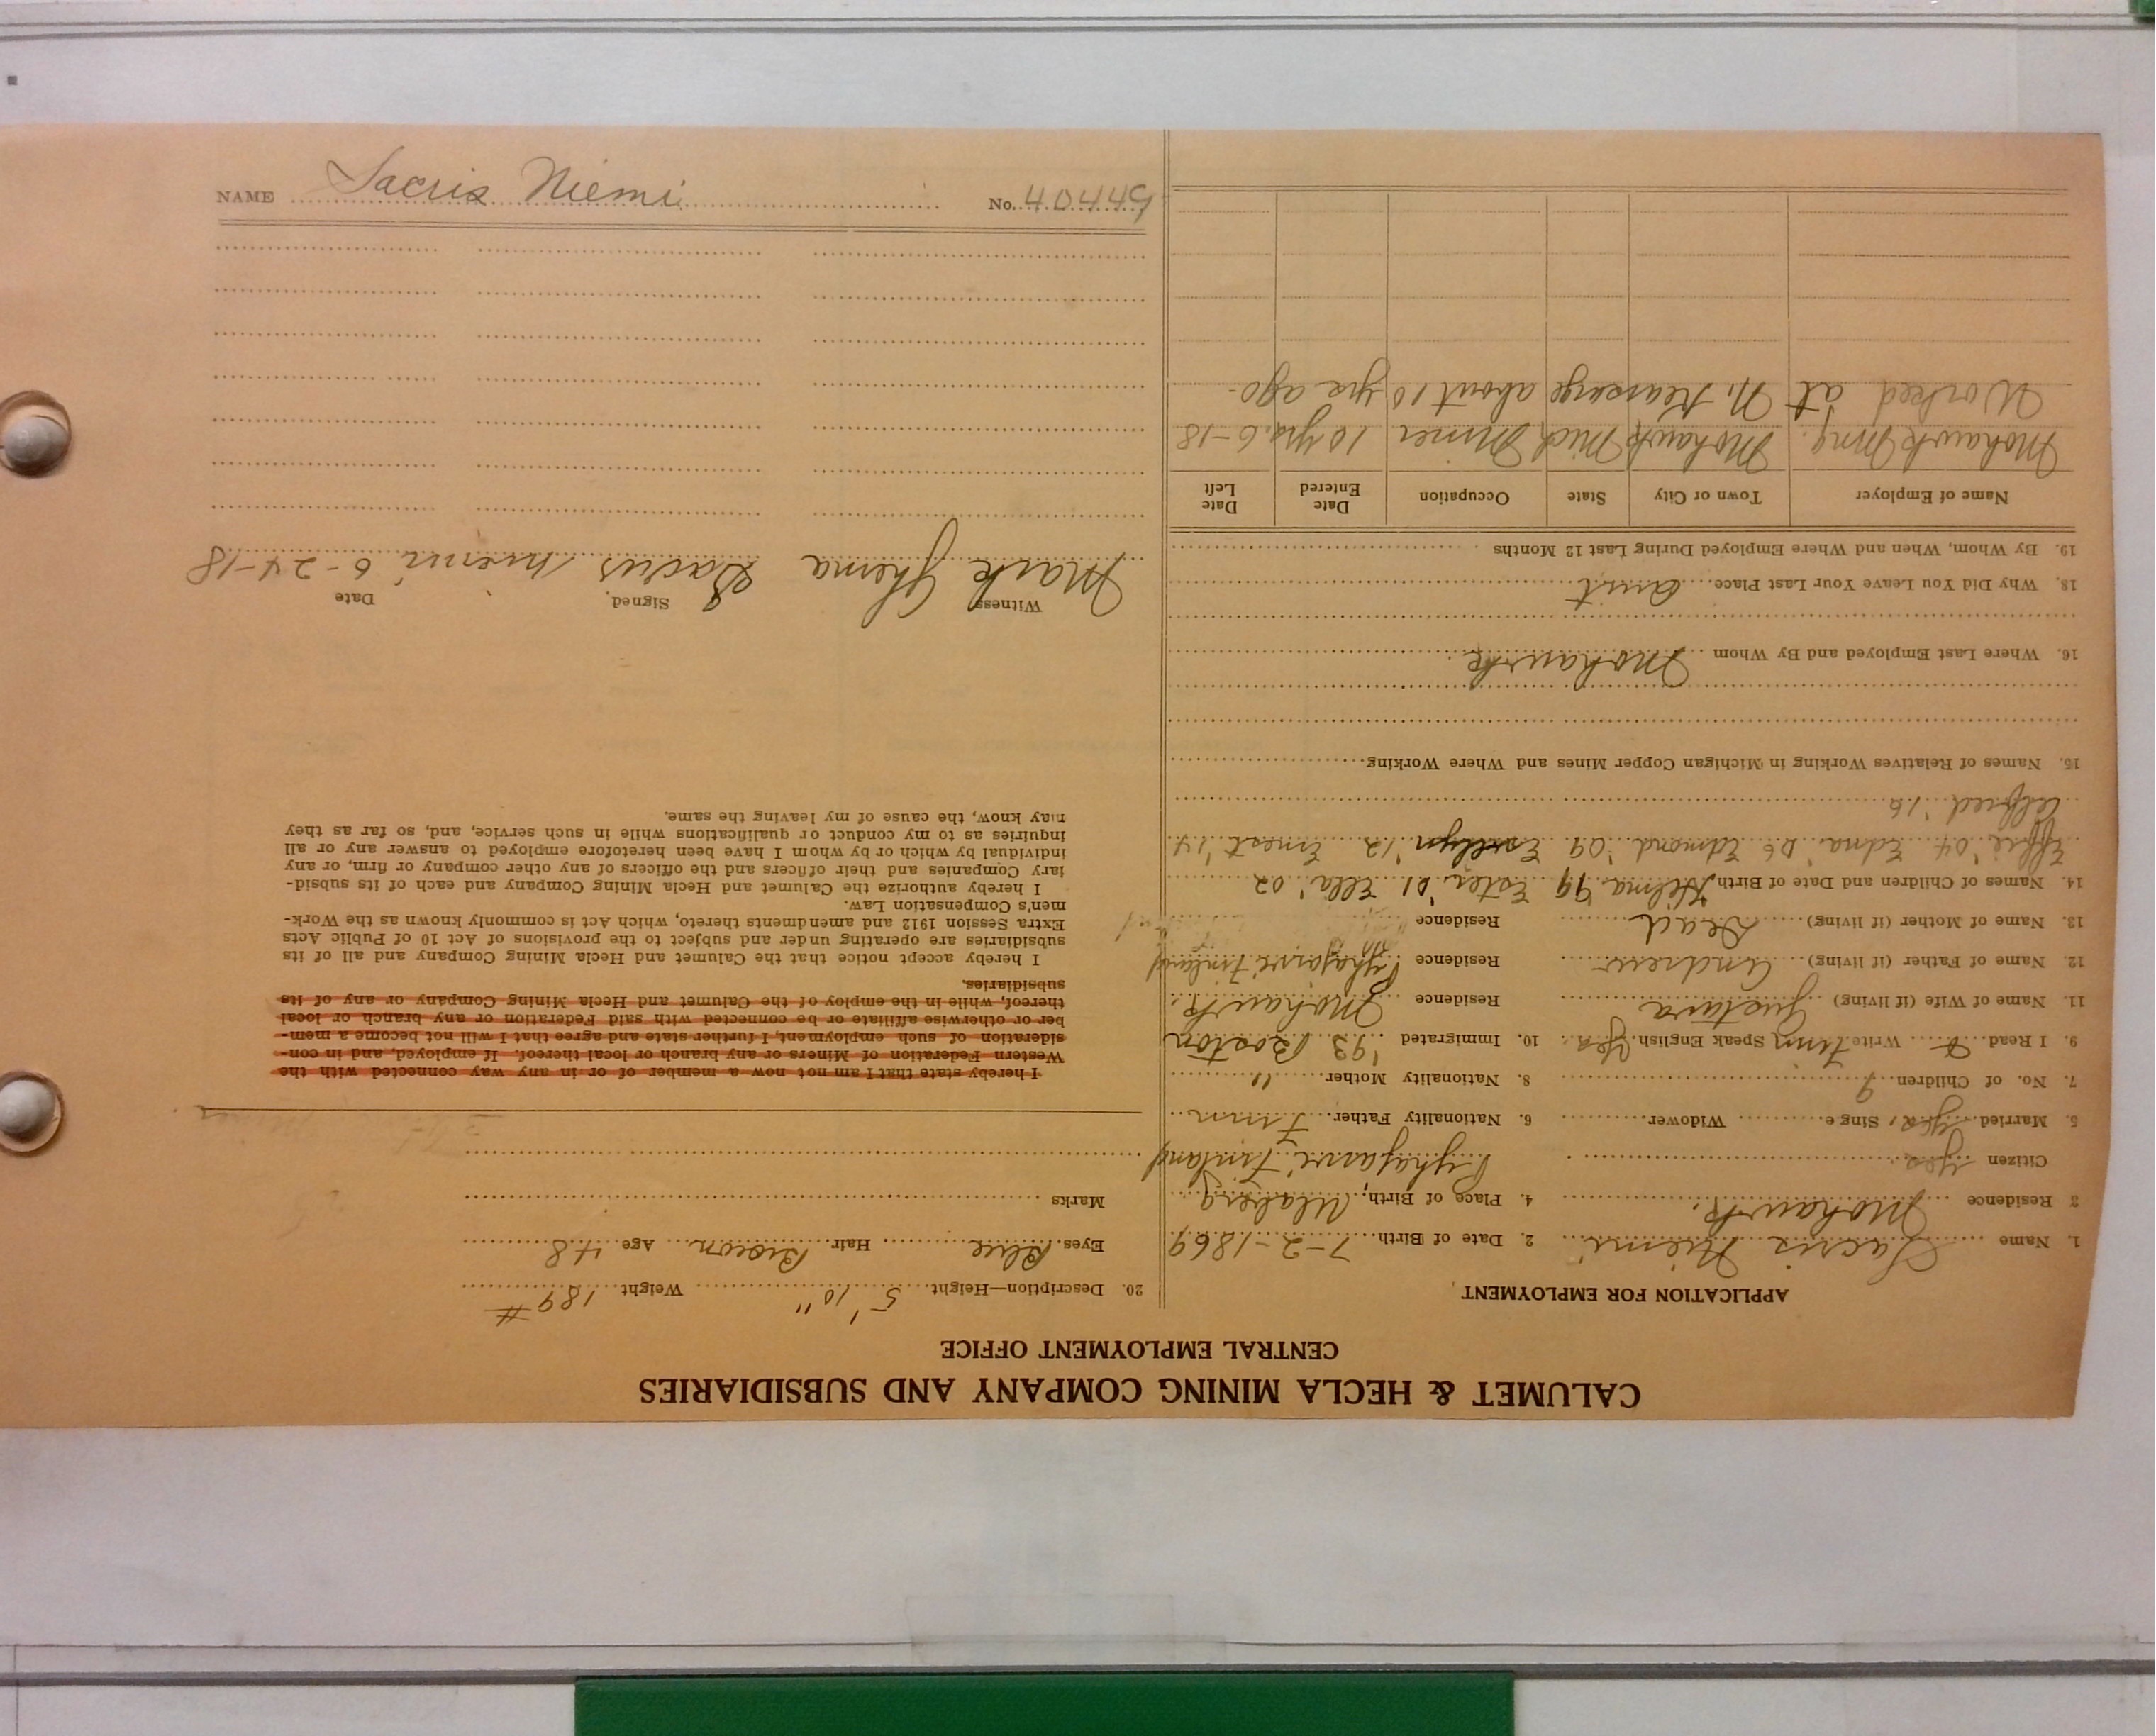 CALUMET & HECLA MINING COMPANY AND SUBSIDIARIES
CENTRAL EMPLOYMENT OFFICE
APPLICATION FOR EMPLOYMENT
1. Name Sacris Niemi 2. Date of Birth 7-2-1869
3 Residence Mohawk. 4. Place of Birth, Uleaborg
Citizen yes Pyhajarvi Finland
5. Married yes, Single Widower 6. Nationality Father Finn
7. No. of Children 9 8. Nationality Mother "
9. I Read & Write Finn Speak English Yes 10. Immigrated '93 Boston
11. Name of Wife (if living) Gustava Residence Mohawk.
12. Name of Father (if living) Andrew Residence Pyhajarvi Finland
13. Name of Mother (if living) Dead Residence
14. Names of Children and Date of Birth Hilma '99 Ester '01 Ella '02
Effie '04 Edna '06 Edmond '09 Evelyn '12 Ernest '14
Alfred '16
15. Names of Relatives Working in Michigan Copper Mines and Where Working
16. Where Last Employed and By Whom Mohawk.
18. Why Did You Leave Your Last Place Quit
19. By Whom, When and Where Employed During Last 12 Months
Name of Employer Town or City State Occupation Date Entered Date Left
Mohawk Mng. Mohawk Mich Miner 10 yrs. 6-18
Worked at N. Kearsarge about 10 yrs ago.
20. Description—Height 5' 10" Weight 189 #
Eyes Blue Hair Brown Age 48
Marks
I hereby state that I am not now a member of or in any way connected with the
Western Federation of Miners or any branch or local thereof. If employed, and in con-
sideration of such employment, I further state and agree that I will not become a mem-
ber or otherwise affiliate or be connected with said Federation or any branch or local
thereof, while in the employ of the Calumet and Hecla Mining Company or any of its
subsidiaries.
I hereby accept notice that the Calumet and Hecla Mining Company and all of its
subsidiaries are operating under and subject to the provisions of Act 10 of Public Acts
Extra Session 1912 and amendments thereto, which Act is commonly known as the Work-
men's Compensation Law.
I hereby authorize the Calumet and Hecla Mining Company and each of its subsid-
iary Companies and their officers and the officers of any other company or firm, or any
individual by which or by whom I have been heretofore employed to answer any or all
inquiries as to my conduct or qualifications while in such service, and, so far as they
may know, the cause of my leaving the same.
Witness Signed. Date
Mark Sacris Niemi 6-24-18
NAME Sacris Niemi No. 40449